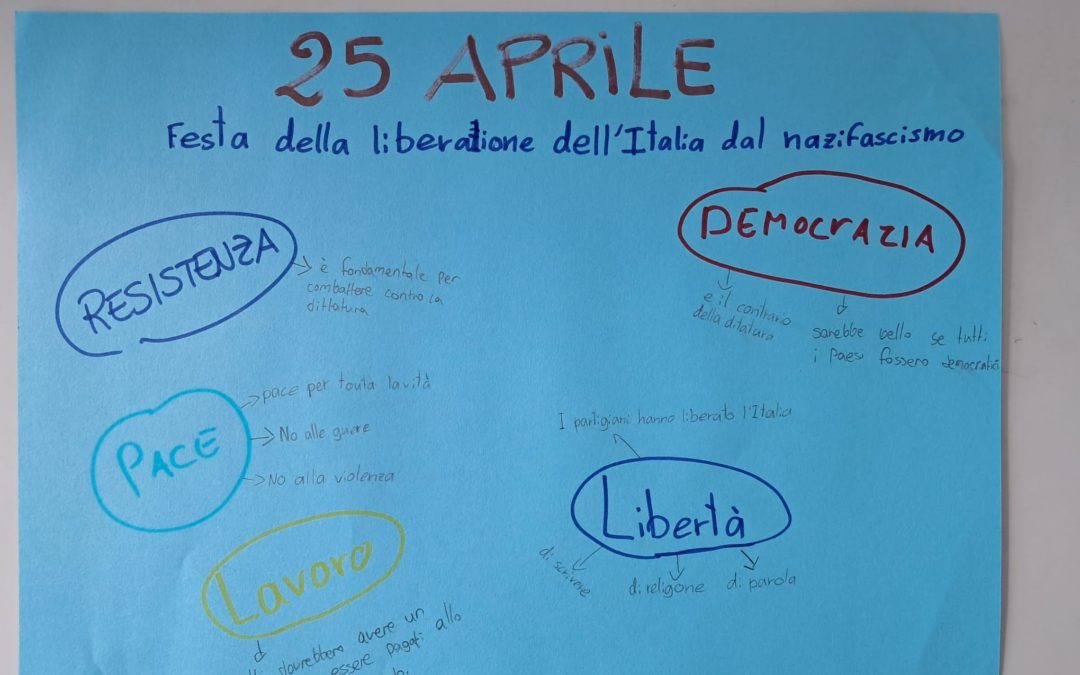 25 APRiLE
Festa della liberazione dell'Italia dal nazifascismo
RESISTENZA
è fondamentale per
combattere contro la
dittatura
DEMOCRAZIA
e il contrario
della ditatura
sarebbe bello se tutti
i Paesi fossero democratici
PACE
pace per toutta la vità
No alle guere
No alla violenza
I partigiani hanno liberato l'Italia
Libertà
di scrivere
di religone
di parola
Lavoro
dovrebbero avere un
essere pagati allo